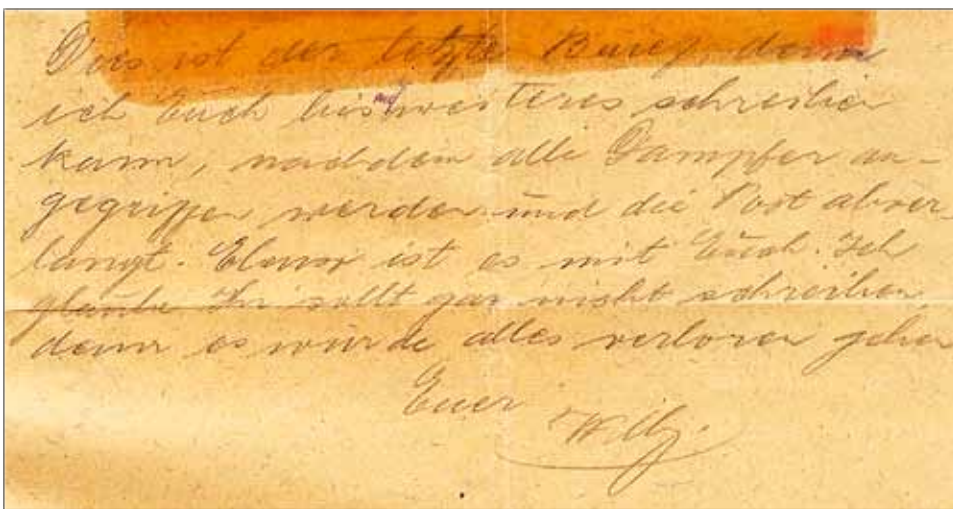 Dies ist der letzte Brief, denn
ich Euch bis auf weiteres schreiben
kann, nachdem alle Dampfer an-
gegriffen werden und die Post abver-
langt. Ebenso ist es mit Euch. Ich
glaube Ihr sollt gar nicht schreiben,
denn es würde alles verloren gehen
Euer
Willy.